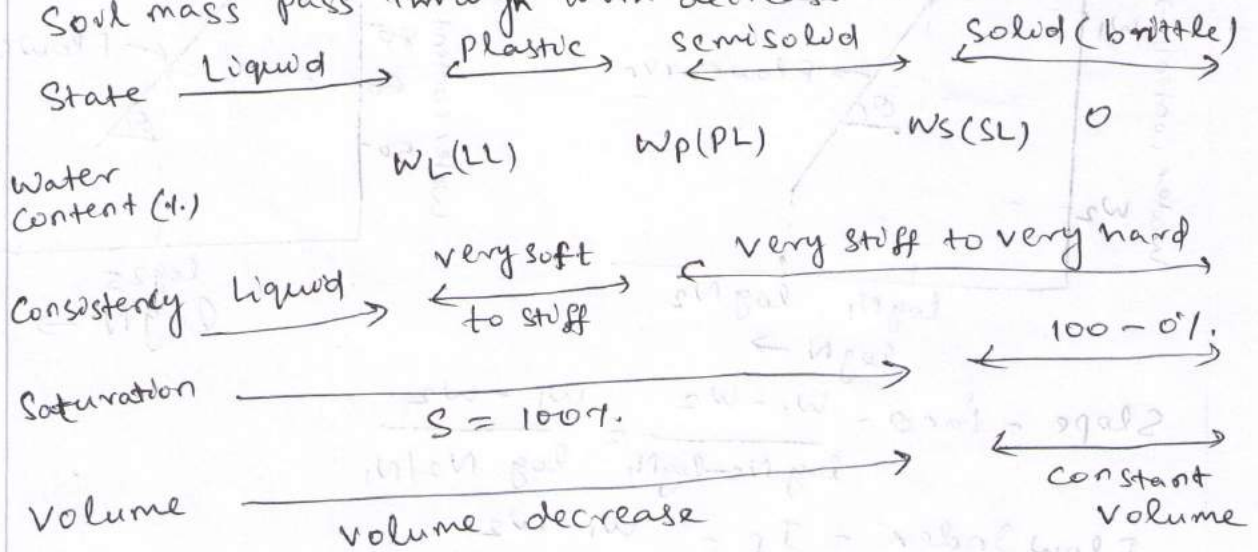 Soil mass pass through with decrease
State Liquid Plastic semisolid Solid (brittle)
Water content (%) WL(LL) Wp(PL) Ws(SL) 0
Consistency Liquid very soft to stiff very stiff to very hard
Saturation S = 100%. 100 - 0%.
Volume volume decrease constant volume